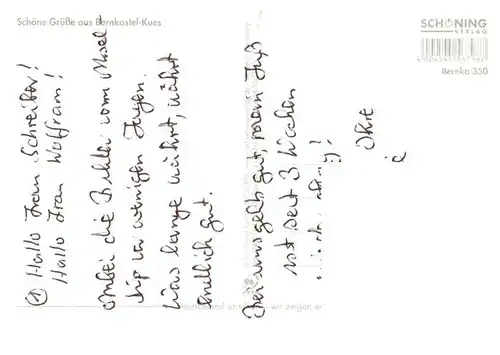 Schöne Grüße aus Bernkastel-Kues
SCHÖNING
VERLAG
Bernka 350
① Hallo Frau Schreiber!
Hallo Frau Wolfram!
Anbei die Bilder vom Mosel-
trip vor wenigen Tagen.
Was lange währt, währt
endlich gut.
Bei uns gehts gut, mein Fuß
ist seit 3 Wochen
Ihre
wir zeigen er